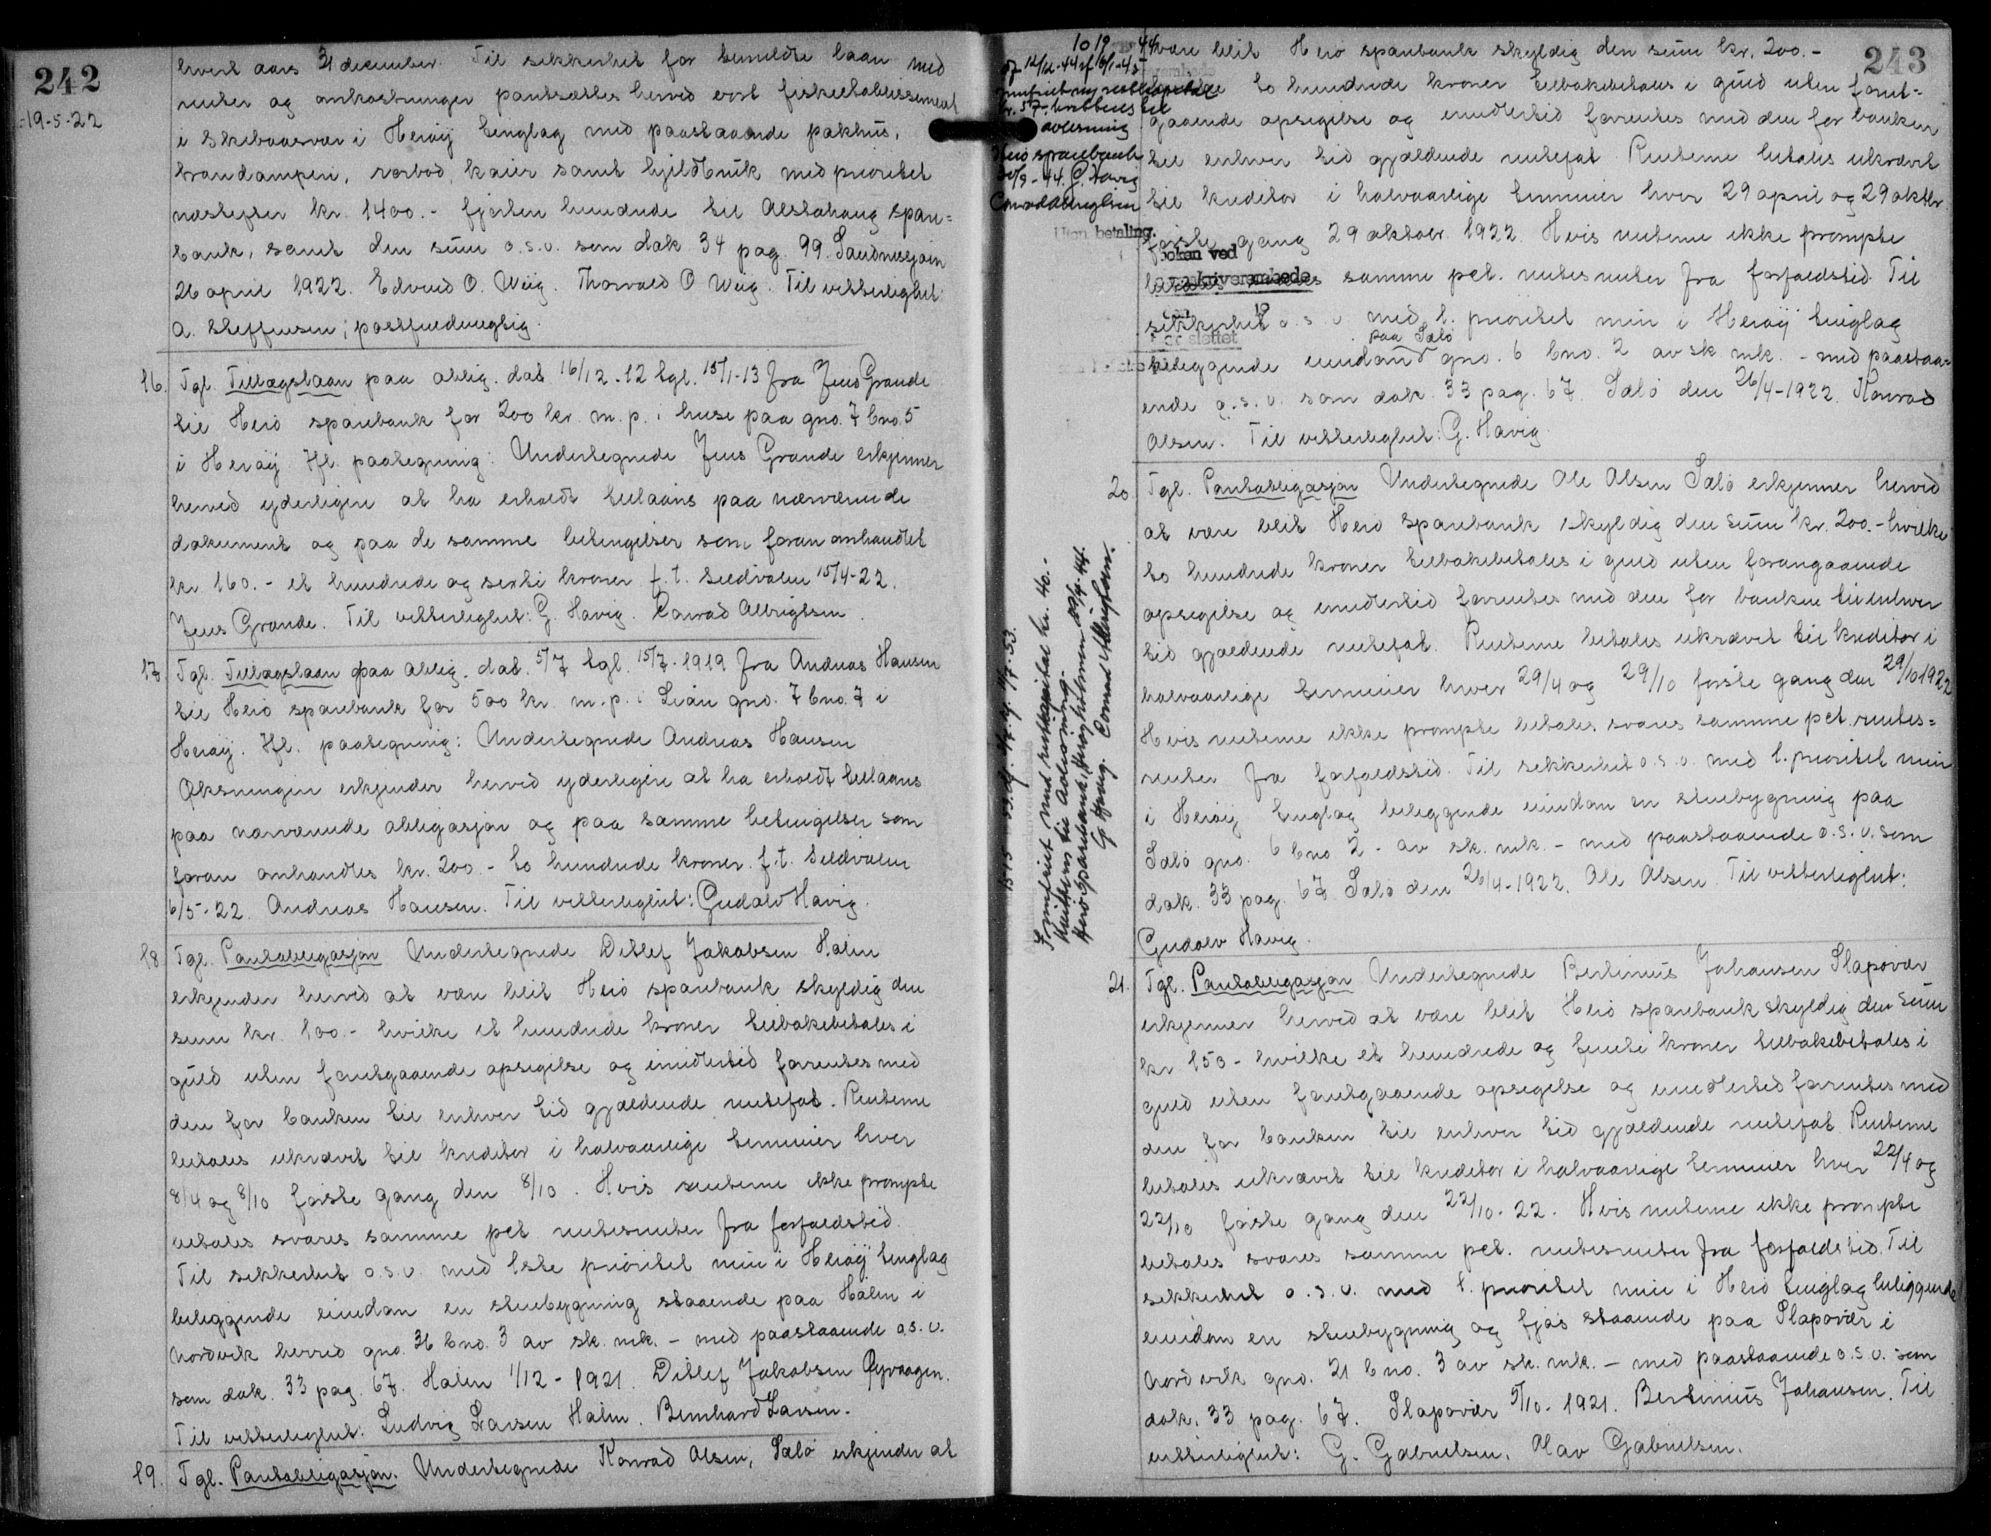 242
19-5-22
hvert aars 31 december. Til sikkerhet for bemeldte laan med
renter og omkostninger pantsættes herved vort fisketablissement
i Skibaasvær i Herøy tinglag med paastaaende pakhus,
trandamperi, rorbod, kaier samt hjeldbruk med prioritet
næstefter kr. 1400.- fjorten hundrede til Alstahaug spare=
bank, samt den sum o.s.v. som dok 34 pag. 99. Sandnessjøen
26 april 1922. Edvard O. Weig. Thorvald O Weig. Til vitterlighet:
A. Steffensen; postfuldmegtig.
16. Tgl. Tillægslaan paa oblig. dat 16/12-12 tgl. 15/1-13 fra Jens Grande
til Herø sparebank for 200 kr. m. p. i huse paa gno. 7 bno. 5
i Herøy Hfl. paategning: Undertegnede Jens Grande erkjenner
herved yderligere at ha erholdt tillaans paa nærværende
dokument og paa de samme betingelser som foran omhandlet
kr 160.- et hundrede og seksti kroner f. t. Seldvalen 15/4-22.
Jens Grande. Til vitterlighet: G. Havig. Conrad Albrigtsen.
17 Tgl. Tillægslaan paa oblig. dat. 5/7 tgl. 15/7-1919 fra Andreas Hansen
til Herø sparebank for 500 kr. m. p. i gno. 7 bno. 7 i
Herøy. Hfl. paategning: Undertegnede Andreas Hansen
Øksningen erkjender herved yderligere at ha erholdt tillaans
paa nærværende obligasjon og paa samme betingelser som
foran omhandles kr. 200 - to hundrede kroner. f. t. Seldvalen
6/5-22. Andreas Hansen. Til vitterlighet: Gudolv Havig.
18 Tgl. Pantobligasjon Undertegnede Ditlef Jakobsen Holm
erkjender herved at være blit Herø sparebank skyldig den
sum kr. 100.- hvilke et hundrede kroner tilbakebetales i
guld uten forutgaaende opsigelse og imidlertid forrentes med
den for banken til enhver tid gjældende rentefot. Renterne
betales ukrævet til kreditor i halvaarlige terminer hver
8/4 og 8/10 første gang den 8/10. Hvis renterne ikke prompte
betales svares samme pct rentesrenter fra forfaldstid.
Til sikkerhet o.s.v. med 1ste prioritet min i Herøy tinglag
beliggende eiendom en stuebygning staaende paa Holm i
Nordvik herred gno. 31 bno. 3 av sk. mk. - med paastaaende o.s.v.
som dok. 33 pag. 67. Holm 1/12-1921. Ditlef Jakobsen Øyvaagen.
Til vitterlighet: Ludvig Larsen Holm. Bernhard Larsen.
19. Tgl. Pantobligasjon. Undertegnede Konrad Olsen, Sælø erkjender at
243
1019 44
Heiø sparebank
avløsning
20/9-44. G. Havig
Conrad Albrigtsen
Uten betaling.
være blit Herø sparebank skyldig den sum kr. 200.-
to hundrede kroner tilbakebetales i guld uten forut=
gaaende opsigelse og imidlertid forrentes med den for banken
til enhver tid gjældende rentefot. Renterne betales ukrævet
til kreditor i halvaarlige terminer hver 29 april og 29 oktbr
første gang 29 oktober 1922. Hvis renterne ikke prompte
samme pct. rentesrenter fra forfaldstid. Til
sikkerhet o.s.v med 1. prioritet min i Herøy tinglag
paa Sælø
beliggende eiendom gno. 6 bno. 2 av sk mk. - med paastaa=
ende o.s.v. som dok. 33 pag. 67. Sælø den 26/4-1922. Konrad
Olsen. Til vitterlighet: G. Havig.
20. Tgl. Pantobligasjon Undertegnede Ole Olsen Sælø erkjenner herved
at være blit Herø sparebank skyldig den sum kr. 200.- hvilke
to hundrede kroner tilbakebetales i guld uten forangaaende
opsigelse og imidlertid forrentes med den for banken til enhver
tid gjældende rentefot. Renterne betales ukrævet til kreditor i
halvaarlige terminer hver 29/4 og 29/10 første gang den 29/10 1922
Hvis renterne ikke prompte betales svares samme pct. rentes=
renter fra forfaldstid. Til sikkerhet o.s.v. med 1. prioritet min
i Herøy tinglag beliggende eiendom en stuebygning paa
Sælø gno. 6 bno 2 - av sk. mk. - med paastaaende o.s.v. som
dok. 33 pag. 67 Sælø den 26/4-1922. Ole Olsen. Til vitterlighet:
Gudolv Havig.
Innfriet med restkapital kr. 40.-
Kvitteres til Avløsning.
Herø Sparebank, Herøyholmen
G Havig. Conrad Albrigtsen.
21. Tgl. Pantobligasjon Undertegnede Bertinius Johansen Slapøvær
erkjenner herved at være blit Herø sparebank skyldig den sum
kr 150 - hvilke et hundrede og femti kroner tilbakebetales i
guld uten forutgaaende opsigelse og imidlertid forrentes med
den for banken til enhver tid gjældende rentefot. Renterne
betales ukrævet til kreditor i halvaarlige terminer hver 22/4 og
22/10 første gang den 22/10-22. Hvis renterne ikke prompte
betales svares samme pct. rentesrenter fra forfaldstid. Til
sikkerhet o.s.v. med 1. prioritet min i Herø tinglag beliggende
eiendom en stuebygning og fjøs staaende paa Slapøvær i
Nordvik gno. 21 bno. 3 av sk. mk. - med paastaaende o.s.v. som
dok. 33 pag. 67. Slapøvær 5/10-1921. Bertinius Johansen. Til
vitterlighet: G. Gabrielsen. Olav Gabrielsen.